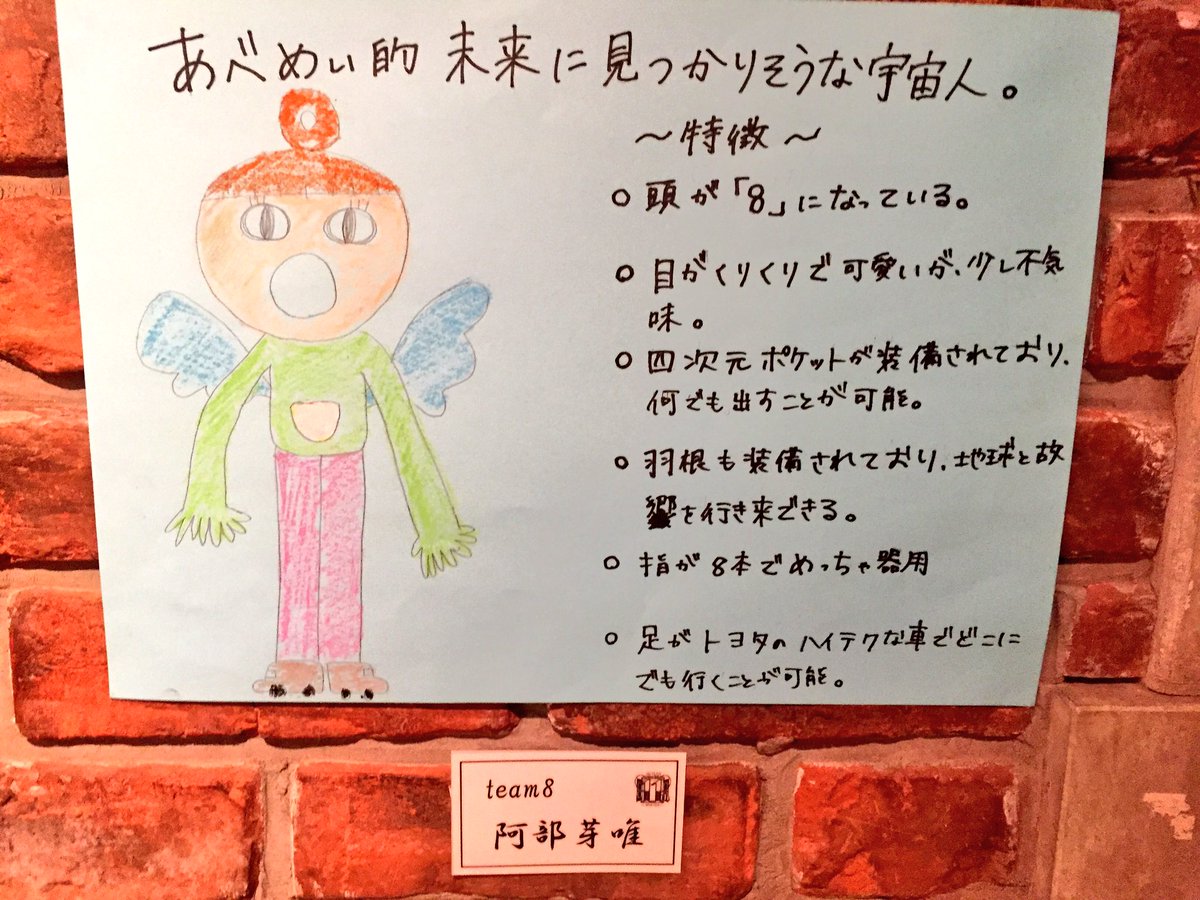 あべめぃ的 未来に見つかりそうな宇宙人。
～特徴～
○ 頭が「8」になっている。
○ 目がくりくりで可愛いが、少し不気
味。
○ 四次元ポケットが装備されており、
何でも出すことが可能。
○ 羽根も装備されており、地球と故
郷を行き来できる。
○ 指が8本でめっちゃ器用
○ 足がトヨタのハイテクな車でどこに
でも行くことが可能。
team8
11
阿部芽唯